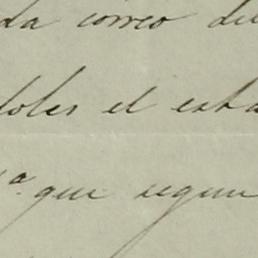 da correo de
doles el esta
ª que segun